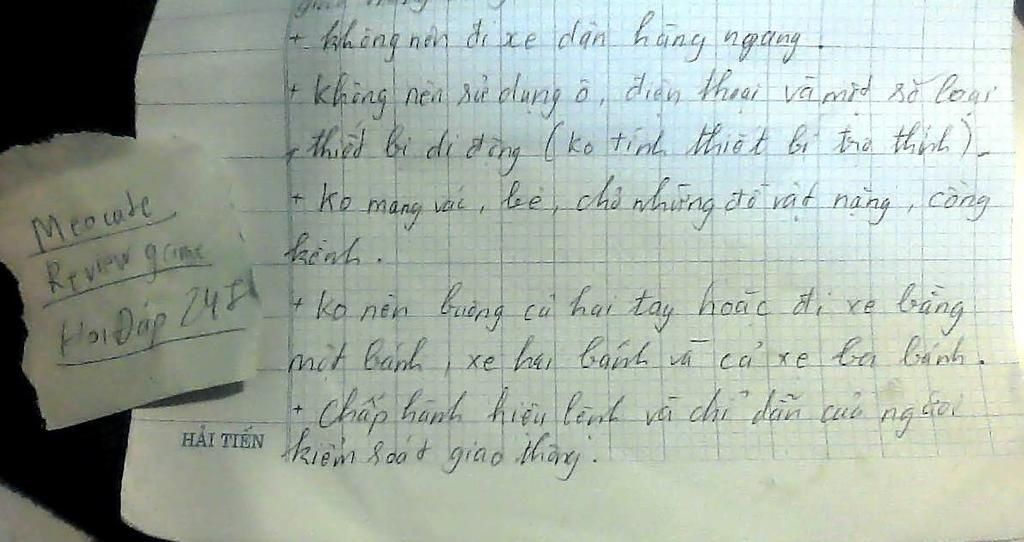 + không nên đi xe dàn hàng ngang.
+ không nên sử dụng ô, điện thoại và một số loại
thiết bị di động (ko tính thiết bị trợ thính).
+ ko mang vác, bê, chở những đồ vật nặng, cồng
kềnh.
+ ko nên buông cả hai tay hoặc đi xe bằng
một bánh, xe hai bánh và cả xe ba bánh.
+ chấp hành hiệu lệnh và chỉ dẫn của người
kiểm soát giao thông.
HẢI TIẾN
Meocute
Review game
Hỏi Đáp 248